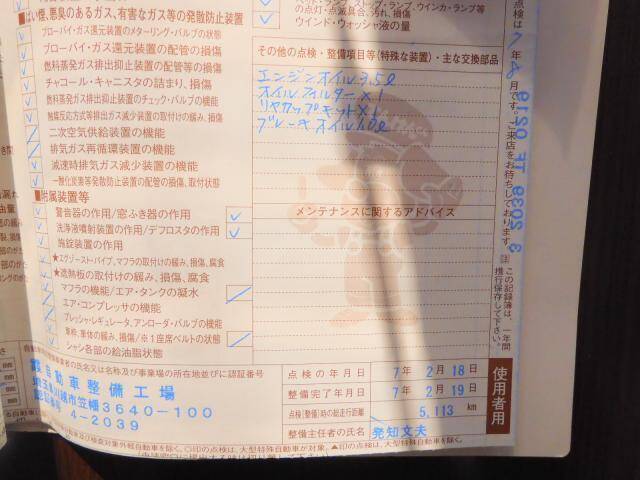 ■ばい煙、悪臭のあるガス、有害なガス等の発散防止装置
ブローバイ・ガス還元装置のメターリング・バルブの状態
ブローバイ・ガス還元装置の配管の損傷
燃料蒸発ガス排出抑止装置の配管等の損傷
チャコール・キャニスタの詰まり、損傷
燃料蒸発ガス排出抑止装置のチェック・バルブの機能
触媒反応方式等排出ガス減少装置の取付けの緩み、損傷
二次空気供給装置の機能
排気ガス再循環装置の機能
減速時排気ガス減少装置の機能
一酸化炭素等発散防止装置の配管の損傷、取付状態
■附属装置等
警音器の作用/窓ふき器の作用
洗浄液噴射装置の作用/デフロスタの作用
施錠装置の作用
★エグゾースト・パイプ、マフラの取付けの緩み、損傷、腐食
★遮熱板の取付けの緩み、損傷、腐食
マフラの機能/エア・タンクの凝水
エア・コンプレッサの機能
プレッシャ・レギュレータ、アンローダ・バルブの機能
車枠、車体の緩み、損傷/※1座席ベルトの状態
シャシ各部の給油脂状態
の点灯・点滅具合、汚れ、損傷
ウインド・ウォッシャ液の量
その他の点検・整備項目等(特殊な装置)・主な交換部品
エンジンオイル3.5ℓ
オイルフィルター×1
リヤカップキット×1
ブレーキオイル1.0ℓ
メンテナンスに関するアドバイス
点検の年月日 7年 2月 18日
整備完了年月日 7年 2月 19日
点検(整備)時の総走行距離 5,113 km
整備主任者の氏名 発知文夫
使用者用
事業者の氏名又は名称及び事業場の所在地並びに認証番号
自動車整備工場
川越市笠幡3640-100
4-2039
点検は7年8月です。ご来店をお待ちしております。
この記録簿は、一年間
携行保存して下さい。